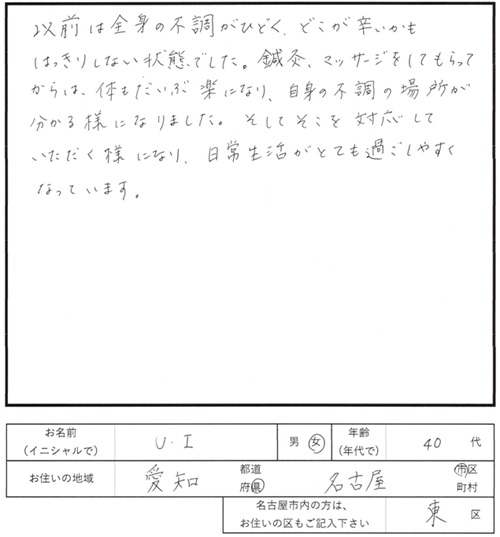 以前は全身の不調がひどく、どこが辛いかも
はっきりしない状態でした。鍼灸、マッサージをしてもらって
からは、体もだいぶ楽になり、自身の不調の場所が
分かる様になりました。そしてそこを対応して
いただく様になり、日常生活がとても過ごしやすく
なっています。
お名前 (イニシャルで) U・I 男 女 年齢 (年代で) 40 代
お住いの地域 愛知 都道府県 名古屋 市区町村
名古屋市内の方は、お住いの区もご記入下さい 東 区